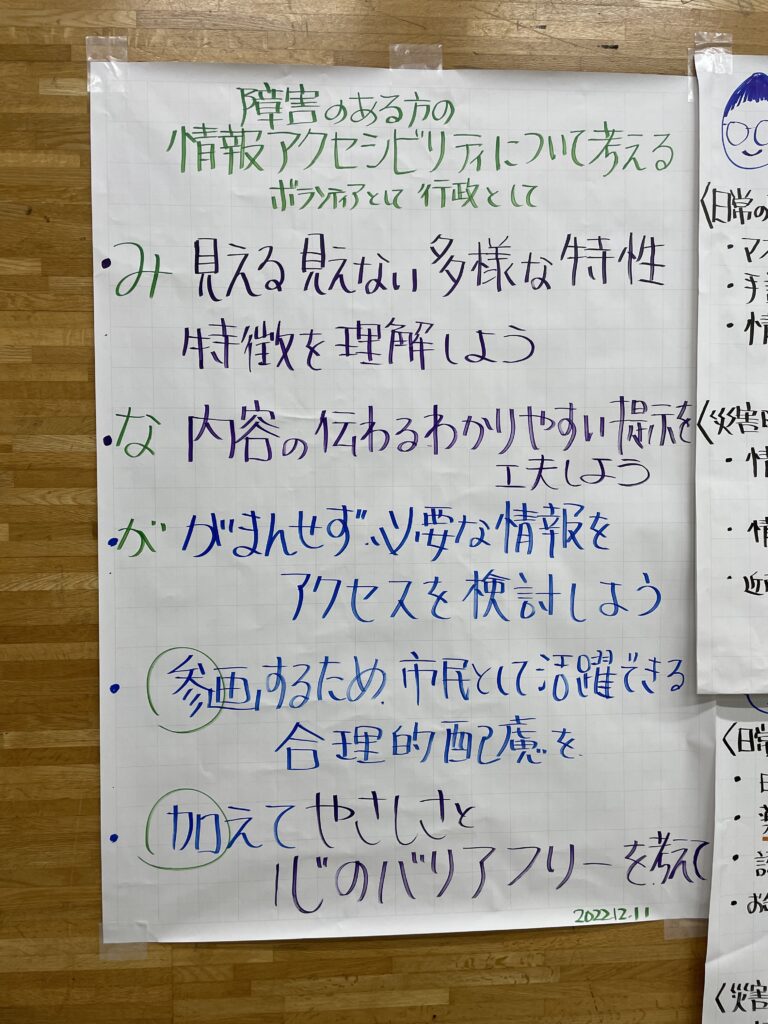 障害のある方の
情報アクセシビリティについて考える
ボランティアとして 行政として
・み 見える見えない多様な特性
特徴を理解しよう
・な 内容の伝わるわかりやすい提示を
工夫しよう
・が がまんせず、必要な情報を
アクセスを検討しよう
・参画するため、市民として活躍できる
合理的配慮を
・加えてやさしさと
心のバリアフリーを考えて
2022.12.11
〈日常の
・マス
・手
・情
〈災害
・情
・情
・近
〈日常
・日
・
・
・お
〈災害